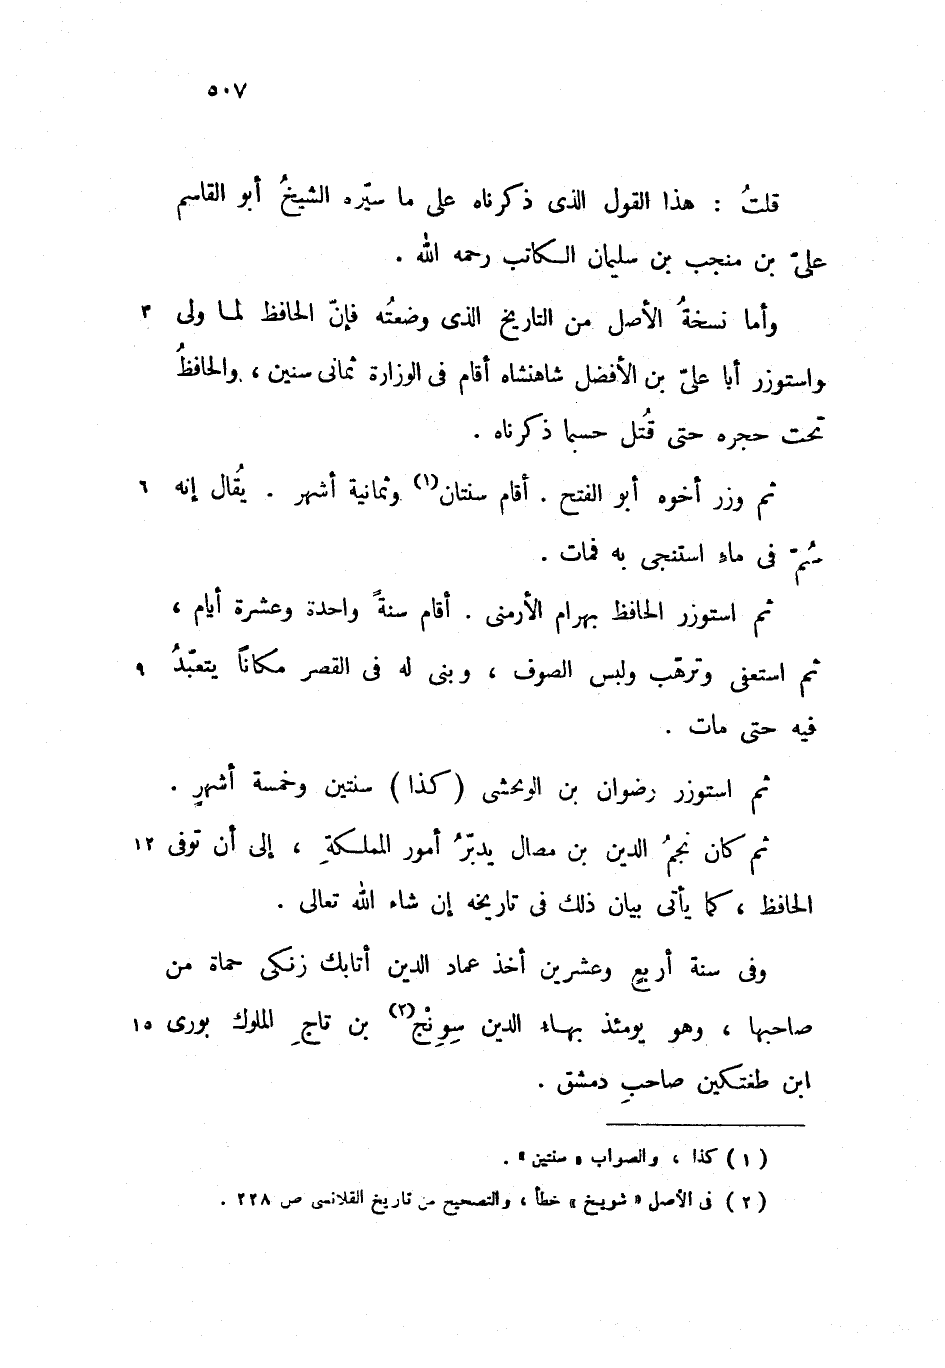 ٥٠٧
قلتُ : هذا القول الذى ذكرناه على ما سيّره الشيخُ أبو القاسم
علىّ بن منجب بن سليمان الكاتب رحمه الله .
وأما نسخةُ الأصل من التاريخ الذى وضعتُه فإنّ الحافظ لما ولى ٣
واستوزر أبا علىّ بن الأفضل شاهنشاه أقام فى الوزارة ثمانى سنين ، والحافظُ
تحت حجره حتى قُتل حسبما ذكرناه .
ثم وزر أخوه أبو الفتح . أقام سنتان(١) وثمانية أشهر . يقُال إنه ٦
سُمّ فى ماءِ استنجى به فمات .
ثم استوزر الحافظ بهرام الأرمنى . أقام سنةً واحدة وعشرة أيام ،
ثم استعفى وترهّب ولبس الصوف ، وبنى له فى القصر مكاناً يتعبّدُ ٩
فيه حتى مات .
ثم استوزر رضوان بن الوحشى (كذا) سنتين وخمسة أشهرٍ .
ثم كان نجمُ الدين بن مصال يدبّرُ أمور المملكةِ ، إلى أن توفى ١٢
الحافظ ، كما يأتى بيان ذلك فى تاريخه إن شاء الله تعالى .
وفى سنة أربعٍ وعشرين أخذ عماد الدين أتابك زنكى حماة من
صاحبها ، وهو يومئذ بهاء الدين سِونْج(٢) بن تاجِ الملوك بورى ١٥
ابن طغتكين صاحبِ دمشق .
(١) كذا ، والصواب « سنتين » .
(٢) فى الأصل « شويخ » خطأ ، والتصحيح من تاريخ القلانسى ص ٢٢٨ .